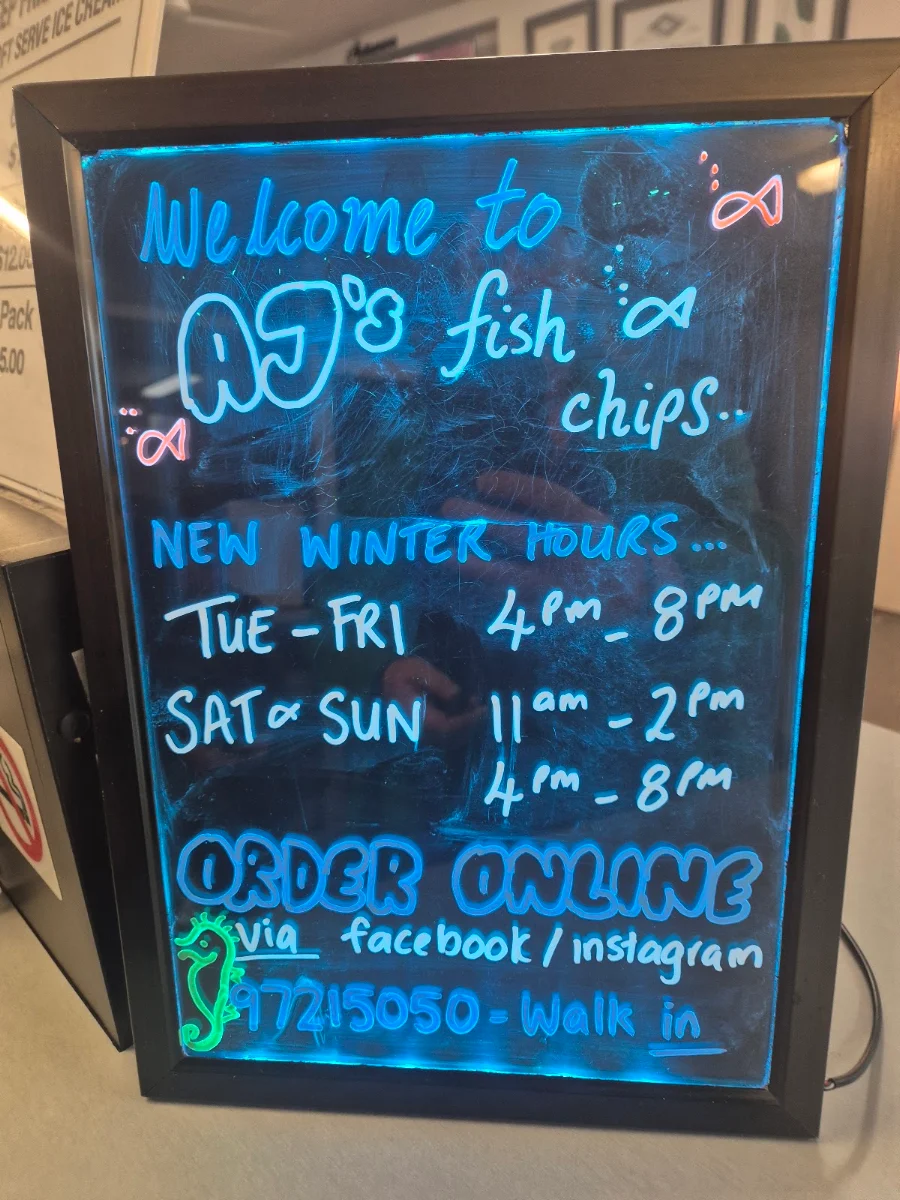 EP FRI
FT SERVE ICE CREAM
$12.00
Pack
5.00
Welcome to
AJ's fish
chips..
NEW WINTER HOURS...
TUE - FRI 4pm - 8pm
SAT & SUN 11am - 2pm
4pm - 8pm
ORDER ONLINE
via facebook / instagram
97215050 - Walk in